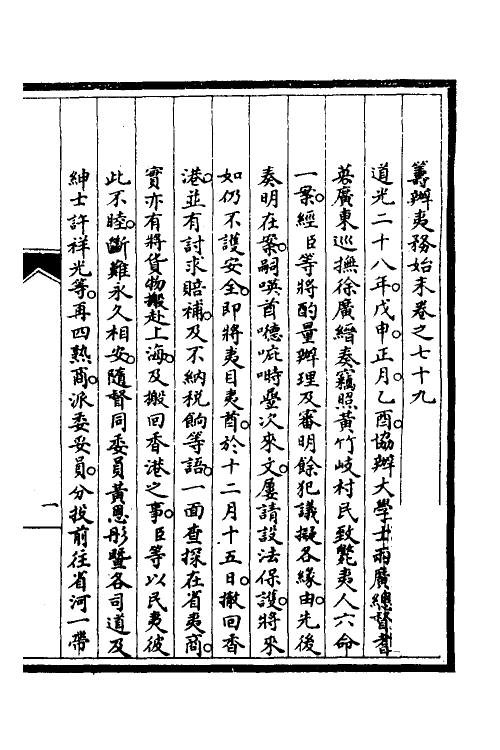 籌辦夷務始末卷之七十九
道光二十八年。戊申。正月。乙酉。協辦大學士兩廣總督耆
英廣東巡撫徐廣縉奏竊照黃竹岐村民致斃夷人六命
一案。經臣等將酌量辦理及審明餘犯議擬各緣由。先後
奏明在案。嗣𠸄酋嚈呲時疊次來文。屢請設法保護。將來
如仍不護安全。即將夷目夷酋。於十二月十五日。撤回香
港。並有討求賠補。及不納稅餉等語。一面查探在省夷商。
實亦有將貨物搬赴上海。及搬回香港之事。臣等以民夷彼
此不睦。斷難永久相安。隨督同委員黃恩彤暨各司道及
紳士許祥光等。再四熟商。派委妥員。分投前往省河一帶
一